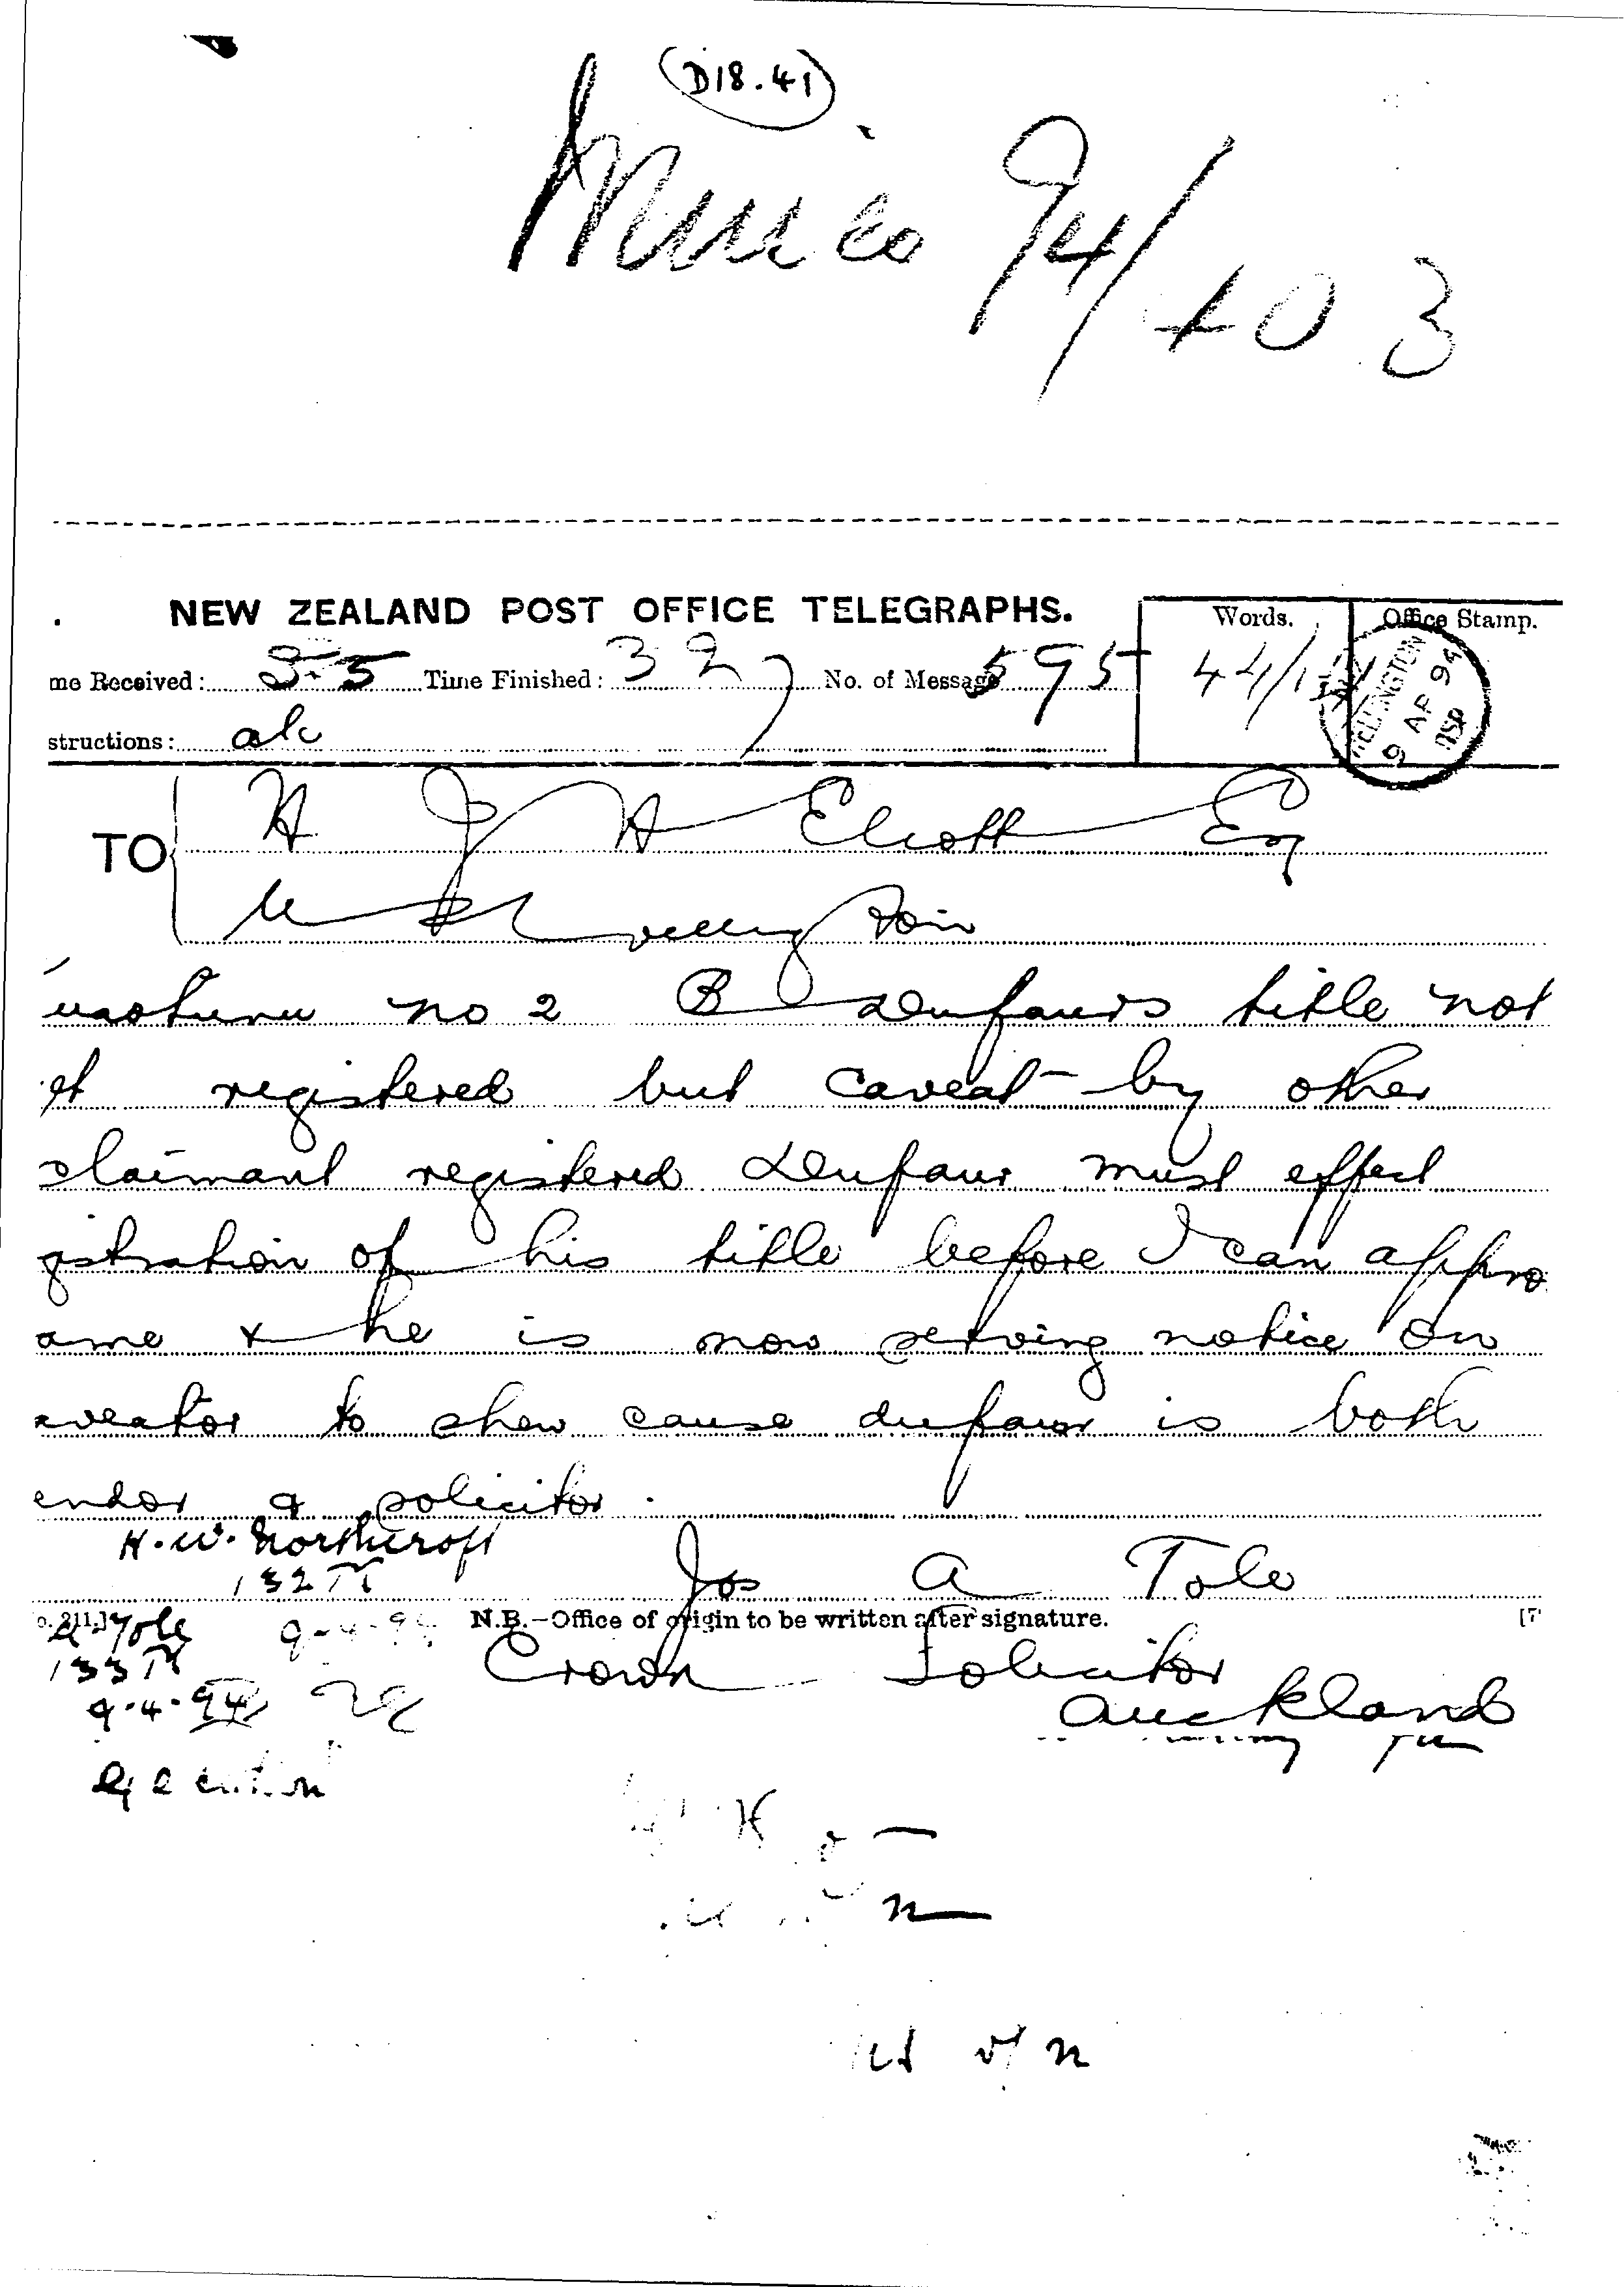 (D18.41)
94/103
NEW ZEALAND POST OFFICE TELEGRAPHS.
Words.
Office Stamp.
me Received: 3-5 Time Finished: 327 No. of Message 595
44/1
WELLINGTON
9 AP 94
structions: ak
TO H J H Eliott Esq
Wellington
uaotunu no 2 B Dufaurs title not
et registered but caveat by other
claimant registered Dufaur must effect
gistration of his title before I can appro
ame & he is now serving notice on
aveator to shew cause dufaur is both
endor & solicitor.
H.W. Northcroft
132
Jos A Tole
N.B.—Office of origin to be written after signature.
Tole
9-4-94
133
Crown Solicitor
9.4.94
Auckland